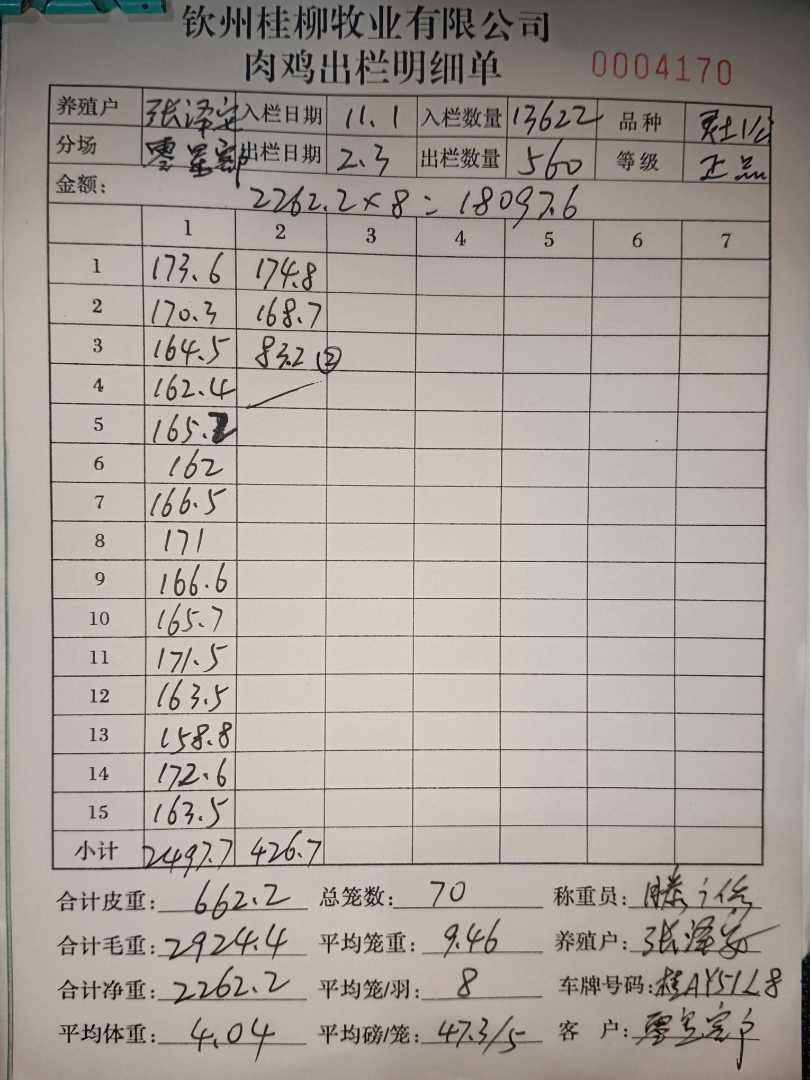 钦州桂柳牧业有限公司
肉鸡出栏明细单 0004170
养殖户 张泽安 入栏日期 11.1 入栏数量 13622 品种
分场 零星客户 出栏日期 2.3 出栏数量 560 等级 正品
金额: 2262.2×8=18097.6
1 2 3 4 5 6 7
1 173.6 174.8
2 170.3 168.7
3 164.5 83.2 ②
4 162.4
5 165.2
6 162
7 166.5
8 171
9 166.6
10 165.7
11 171.5
12 163.5
13 158.8
14 172.6
15 163.5
小计 2497.7 426.7
合计皮重: 662.2 总笼数: 70 称重员: 滕
合计毛重: 2924.4 平均笼重: 9.46 养殖户: 张泽安
合计净重: 2262.2 平均笼/羽: 8 车牌号码: 桂AY51L8
平均体重: 4.04 平均磅/笼: 47.3/5 客户: 零星客户